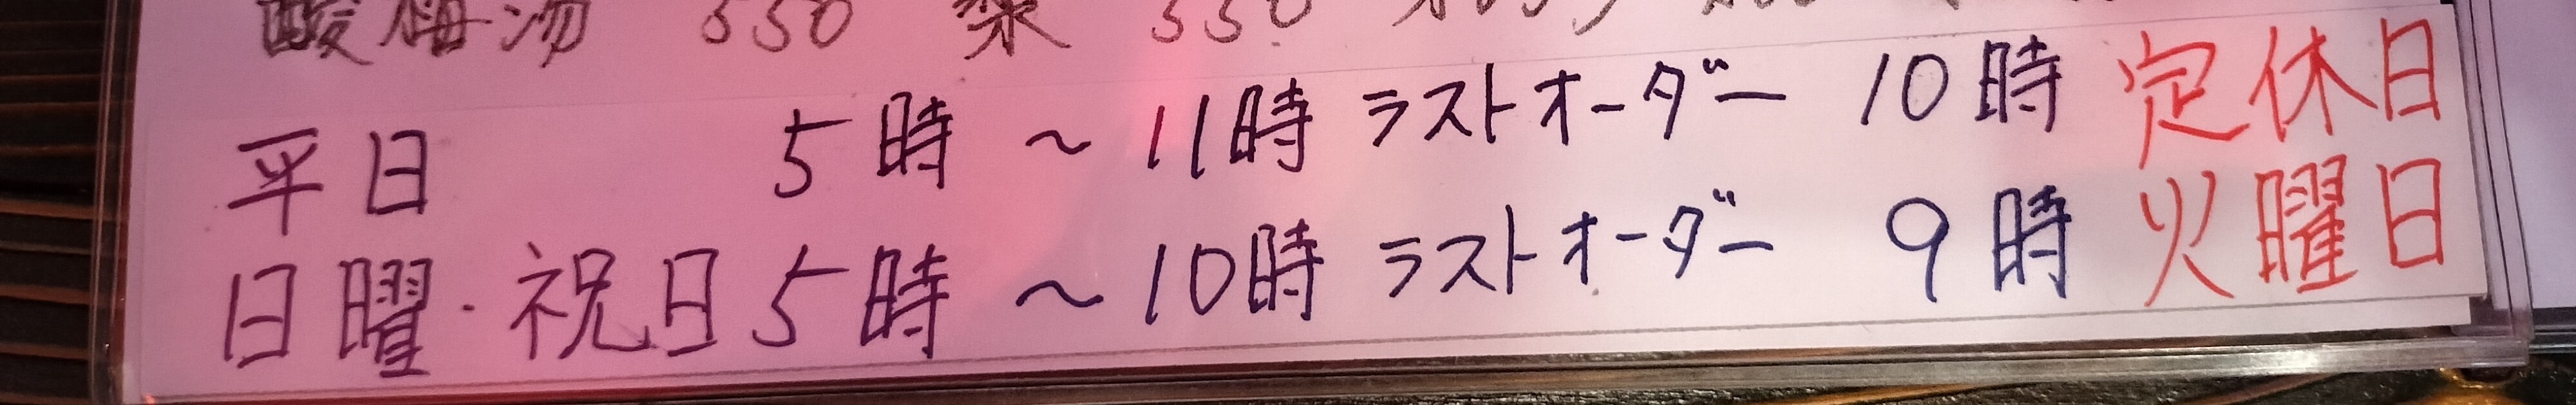 酸梅湯 550 梨 550
平日 5時～11時 ラストオーダー 10時 定休日
日曜・祝日 5時～10時 ラストオーダー 9時 火曜日